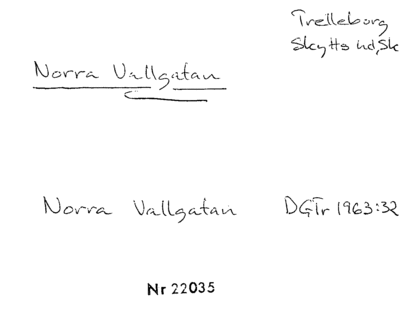 Trelleborg
Skytts hd, Sk
Norra Vallgatan
Norra Vallgatan DGTr 1963:32
Nr 22035